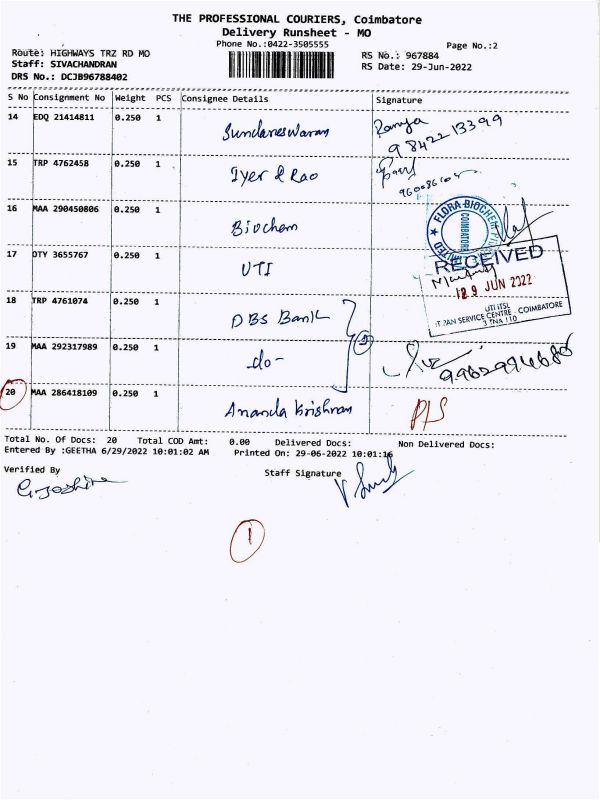 THE PROFESSIONAL COURIERS, Coimbatore
Delivery Runsheet - MO
Phone No.:0422-3505555
Page No.:2
Route: HIGHWAYS TRZ RD MO
RS No.: 967884
Staff: SIVACHANDRAN
RS Date: 29-Jun-2022
DRS No.: DCJB96788402
S No Consignment No Weight PCS Consignee Details Signature
14 EDQ 21414811 0.250 1 Sundareswaran Ramya
9842213399
15 TRP 4762458 0.250 1 Iyer & Rao
16 MAA 290450806 0.250 1 Biochem
FLORA BIOCHEM
COIMBATORE
17 DTY 3655767 0.250 1 UTI
RECEIVED
29 JUN 2022
UTI ITSL
PAN SERVICE CENTRE - COIMBATORE
18 TRP 4761074 0.250 1 DBS Bank
19 MAA 292317989 0.250 1 -do-
20 MAA 286418109 0.250 1 Ananda Krishnan P/S
Total No. Of Docs: 20 Total COD Amt: 0.00 Delivered Docs: Non Delivered Docs:
Entered By :GEETHA 6/29/2022 10:01:02 AM Printed On: 29-06-2022 10:01:16
Verified By Staff Signature
1